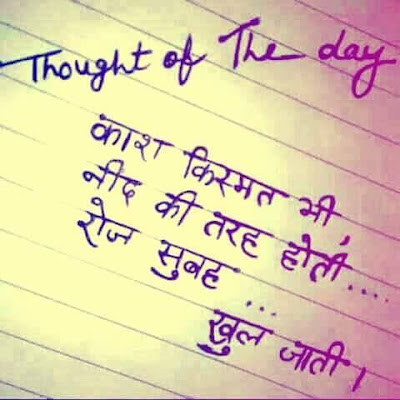 Thought of The day
काश किस्मत भी,
नींद की तरह होती....
रोज सुबह ...
खुल जाती।